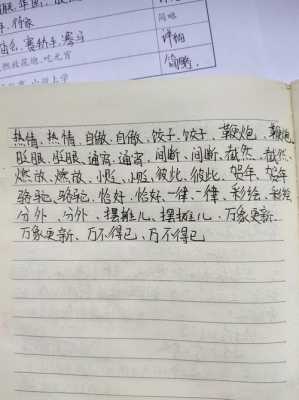 简略
详细
简略
热情、热情、自傲、自傲、饺子、饺子、鞭炮、鞭炮
眨眼、眨眼、通宵、通宵、间断、间断、截然、截然、
燃放、燃放、小贩、小贩、彼此、彼此、贺年、贺年
骆驼、骆驼、恰好、恰好、一律、一律、彩绘、彩绘
分外、分外、摆摊儿、摆摊儿、万象更新、
万象更新、万不得已、万不得已